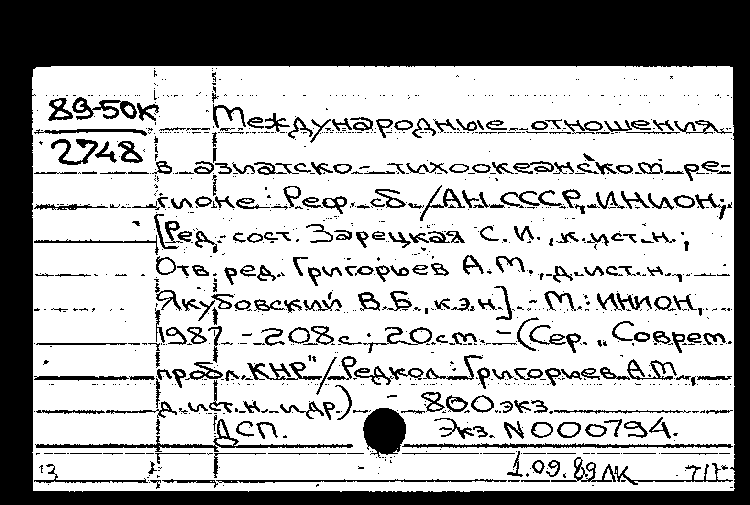 89-50К
2748
Международные отношения
в азиатско-тихоокеанском ре=
гионе: Реф. сб./АН СССР, ИНИОН;
[Ред.-сост. Зарецкая С.И., к.ист.н.;
Отв. ред. Григорьев А.М., д.ист.н.,
Якубовский В.Б., к.э.н.] - М.: ИНИОН,
1987 - 208с.; 20см. - (Сер. "Соврем.
пробл. КНР"/Редкол.: Григорьев А.М.,
д.ист.н. и др.) - 800 экз.
ДСП. Экз. N000794.
13 1.09.89 ЛК